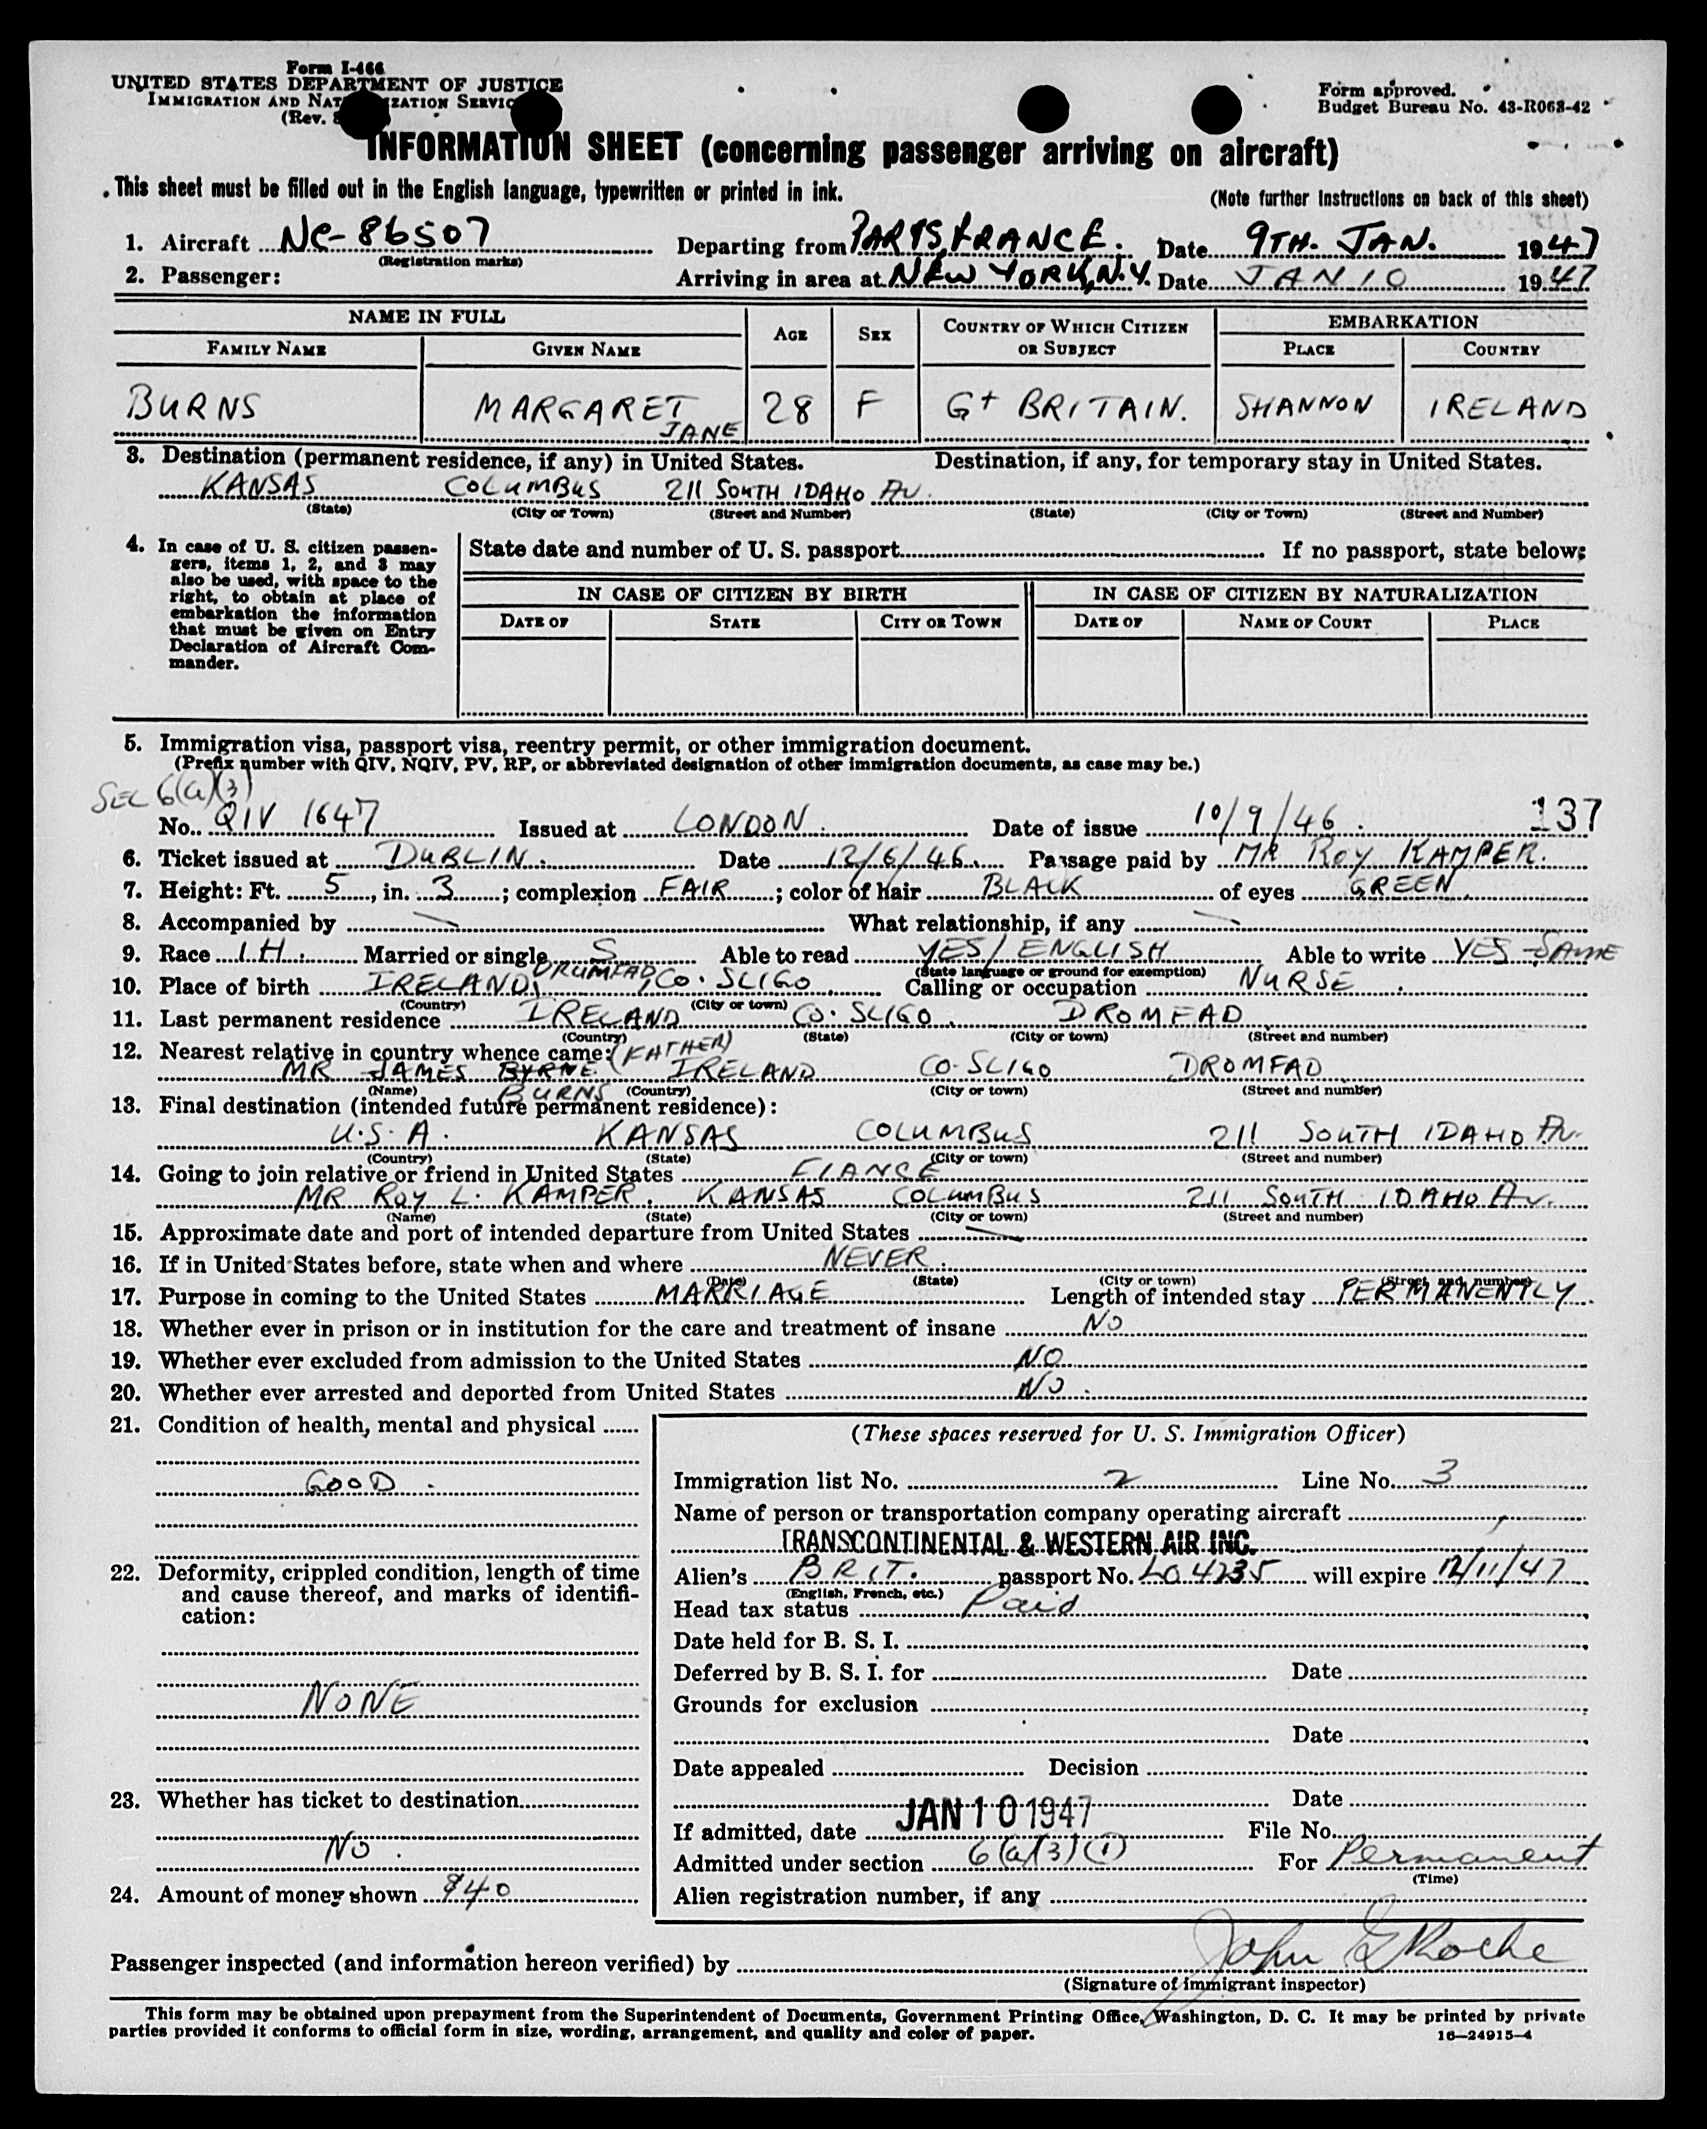 Form I-466
UNITED STATES DEPARTMENT OF JUSTICE
IMMIGRATION AND NATURALIZATION SERVICE
(Rev.
Form approved.
Budget Bureau No. 43-R068-42
INFORMATION SHEET (concerning passenger arriving on aircraft)
This sheet must be filled out in the English language, typewritten or printed in ink.
(Note further instructions on back of this sheet)
1. Aircraft NC-86507 Departing from PARIS, FRANCE. Date 9TH. JAN. 1947
(Registration marks)
2. Passenger: Arriving in area at NEW YORK, N.Y. Date JAN 10 1947
NAME IN FULL AGE SEX COUNTRY OF WHICH CITIZEN OR SUBJECT EMBARKATION
FAMILY NAME GIVEN NAME PLACE COUNTRY
BURNS MARGARET JANE 28 F Gt BRITAIN. SHANNON IRELAND
3. Destination (permanent residence, if any) in United States. Destination, if any, for temporary stay in United States.
KANSAS COLUMBUS 211 SOUTH IDAHO AV.
(State) (City or Town) (Street and Number) (State) (City or Town) (Street and Number)
4. In case of U. S. citizen passen-
gers, items 1, 2, and 3 may
also be used, with space to the
right, to obtain at place of
embarkation the information
that must be given on Entry
Declaration of Aircraft Com-
mander.
State date and number of U. S. passport If no passport, state below:
IN CASE OF CITIZEN BY BIRTH IN CASE OF CITIZEN BY NATURALIZATION
DATE OF STATE CITY OR TOWN DATE OF NAME OF COURT PLACE
5. Immigration visa, passport visa, reentry permit, or other immigration document.
(Prefix number with QIV, NQIV, PV, RP, or abbreviated designation of other immigration documents, as case may be.)
SEC 6(a)(3)
No. QIV 1647 Issued at LONDON. Date of issue 10/9/46. 137
6. Ticket issued at DUBLIN. Date 12/6/46. Passage paid by MR ROY KAMPER.
7. Height: Ft. 5, in. 3; complexion FAIR; color of hair BLACK of eyes GREEN.
8. Accompanied by — What relationship, if any —
9. Race I.H. Married or single S Able to read YES/ENGLISH Able to write YES-SAME
(State language or ground for exemption)
10. Place of birth IRELAND, DRUMFAD, CO. SLIGO. Calling or occupation NURSE.
(Country) (City or town)
11. Last permanent residence IRELAND CO. SLIGO. DROMFAD
(Country) (State) (City or town) (Street and number)
12. Nearest relative in country whence came: (FATHER)
MR JAMES BYRNE BURNS IRELAND CO-SLIGO DROMFAD
(Name) (Country) (City or town) (Street and number)
13. Final destination (intended future permanent residence):
U.S.A. KANSAS COLUMBUS 211 SOUTH IDAHO AV.
(Country) (State) (City or town) (Street and number)
14. Going to join relative or friend in United States FIANCE
MR ROY L. KAMPER. KANSAS COLUMBUS 211 SOUTH IDAHO AV.
(Name) (State) (City or town) (Street and number)
15. Approximate date and port of intended departure from United States —
16. If in United States before, state when and where NEVER.
(Date) (State) (City or town) (Street and number)
17. Purpose in coming to the United States MARRIAGE Length of intended stay PERMANENTLY.
18. Whether ever in prison or in institution for the care and treatment of insane NO
19. Whether ever excluded from admission to the United States NO
20. Whether ever arrested and deported from United States NO.
21. Condition of health, mental and physical
GOOD.
22. Deformity, crippled condition, length of time
and cause thereof, and marks of identifi-
cation:
NONE
23. Whether has ticket to destination
NO.
24. Amount of money shown $40
(These spaces reserved for U. S. Immigration Officer)
Immigration list No. 2 Line No. 3
Name of person or transportation company operating aircraft
TRANSCONTINENTAL & WESTERN AIR INC.
Alien's BRIT. passport No. LO4235 will expire 12/11/47
(English, French, etc.)
Head tax status Paid
Date held for B. S. I.
Deferred by B. S. I. for Date
Grounds for exclusion
Date
Date appealed Decision
Date
If admitted, date JAN 10 1947 File No.
Admitted under section 6(a)(3)(1) For Permanent
(Time)
Alien registration number, if any
Passenger inspected (and information hereon verified) by John G Roche
(Signature of immigrant inspector)
This form may be obtained upon prepayment from the Superintendent of Documents, Government Printing Office, Washington, D. C. It may be printed by private
parties provided it conforms to official form in size, wording, arrangement, and quality and color of paper.
16—24915-4